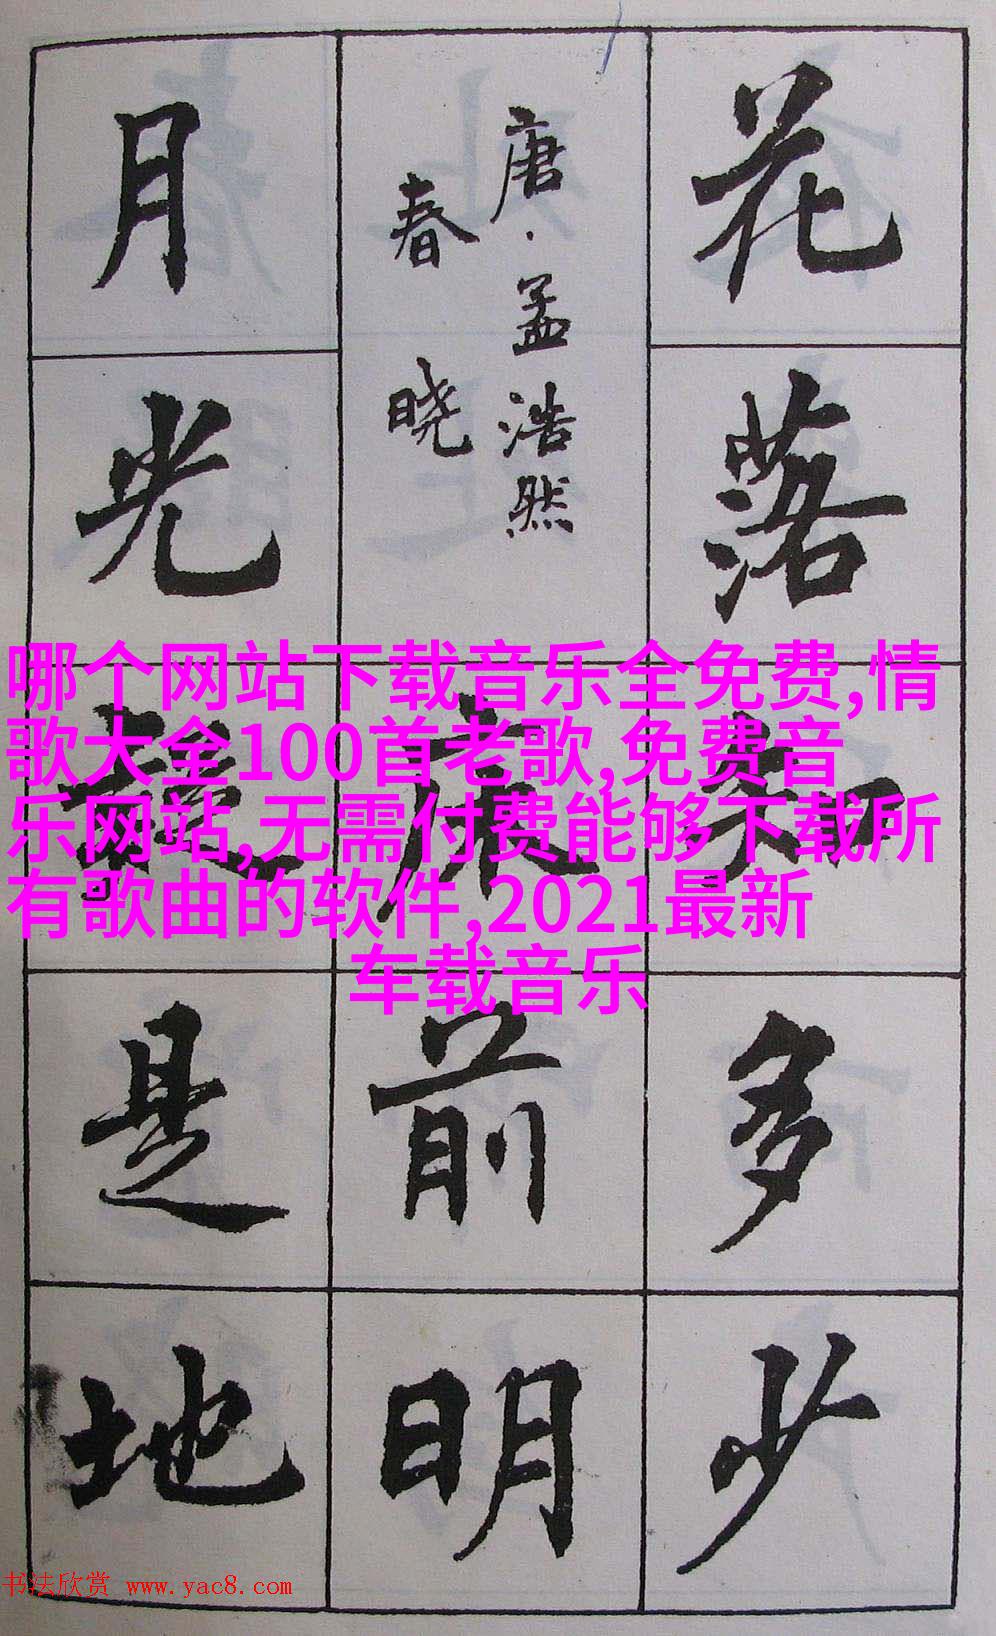 花落知多少
唐·孟浩然
春晓
床前明
月光疑是地
哪个网站下载音乐全免费,情
歌大全100首老歌,免费音
乐网站,无需付费能够下载所
有歌曲的软件,2021最新
车载音乐
书法欣赏 www.yac8.com